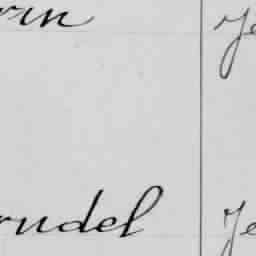 rin Je
rudel Je